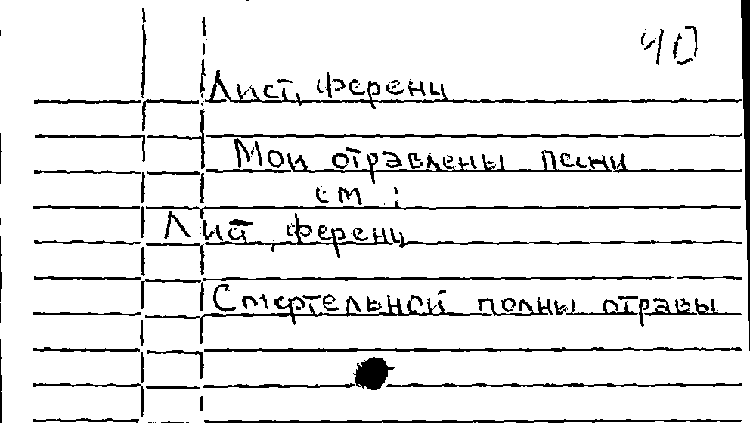 40
Лист, Ференц
Мои отравлены песни
см :
Лист, Ференц
Смертельной полны отравы